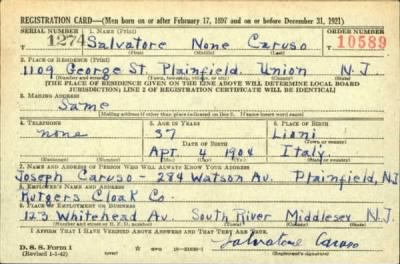 REGISTRATION CARD—(Men born on or after February 17, 1897 and on or before December 31, 1921)
SERIAL NUMBER 1. NAME (Print) ORDER NUMBER
T 1274 Salvatore None Caruso T 10589
(First) (Middle) (Last)
2. PLACE OF RESIDENCE (Print)
1109 George St. Plainfield Union N.J.
(Number and street) (Town, township, village, or city) (County) (State)
[THE PLACE OF RESIDENCE GIVEN ON THE LINE ABOVE WILL DETERMINE LOCAL BOARD
JURISDICTION; LINE 2 OF REGISTRATION CERTIFICATE WILL BE IDENTICAL]
3. MAILING ADDRESS
Same
[Mailing address if other than place indicated on line 2. If same insert word same]
4. TELEPHONE 5. AGE IN YEARS 6. PLACE OF BIRTH
none 37 Lioni
DATE OF BIRTH (Town or county)
Apt. 4 1904 Italy
(Exchange) (Number) (Mo.) (Day) (Yr.) (State or country)
7. NAME AND ADDRESS OF PERSON WHO WILL ALWAYS KNOW YOUR ADDRESS
Joseph Caruso - 284 Watson Av. Plainfield, NJ
8. EMPLOYER'S NAME AND ADDRESS
Rutgers Cloak Co.
9. PLACE OF EMPLOYMENT OR BUSINESS
123 Whitehead Av. South River Middlesex N.J.
(Number and street or R. F. D. number) (Town) (County) (State)
I AFFIRM THAT I HAVE VERIFIED ABOVE ANSWERS AND THAT THEY ARE TRUE.
D. S. S. Form 1
(Revised 1-1-42) (over) Salvatore Caruso